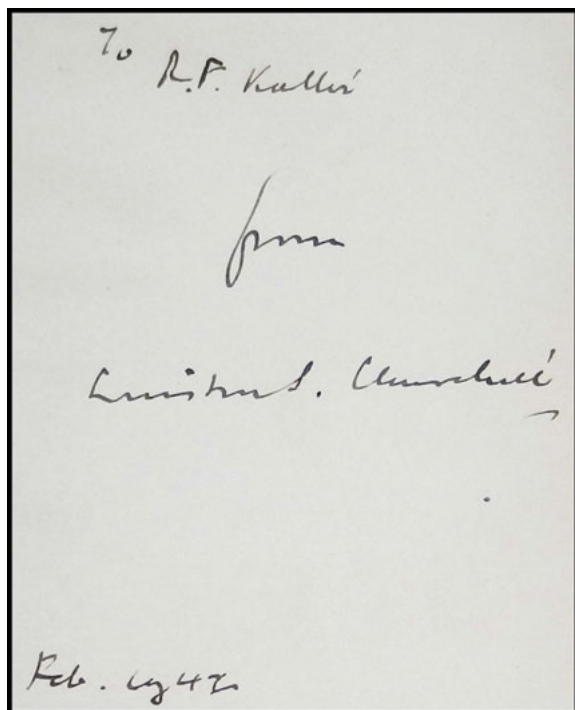 To
R.F. Kallir
from
Winston S. Churchill
Feb. 1947